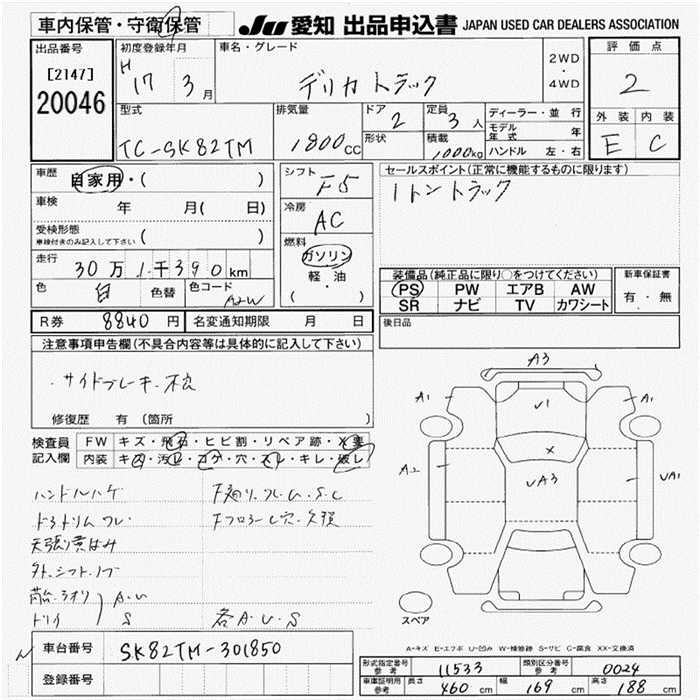 車内保管・守衛保管
JU 愛知 出品申込書 JAPAN USED CAR DEALERS ASSOCIATION
出品番号
[2147]
20046
初度登録年月
H 17 3月
車名・グレード
デリカ トラック
2WD
・
4WD
評価点
2
外装 内装
E C
型式
TC-SK82TM
排気量
1800cc
ドア
2
形状
定員
3人
積載
1000kg
ディーラー・並行
モデル年式 年
ハンドル 左・右
車歴
自家用・( )
車検 年 月( 日)
受検形態
車検付きのみ記入して下さい ( )
走行
30万1千390km
色 白 色替 色コード A2W
シフト
F5
冷房
AC
燃料
ガソリン
軽・油
( )
セールスポイント(正常に機能するものに限ります)
1トントラック
装備品(純正品に限り○をつけてください)
PS PW エアB AW
SR ナビ TV カワシート
新車保証書
有・無
R券 8840円 名変通知期限 月 日
後日品
注意事項申告欄(不具合内容等は具体的に記入して下さい)
・サイドブレーキ不良
修復歴 有 (箇所 )
検査員記入欄
FW キズ・飛石・ヒビ割・リペア跡・×要
内装 キズ・汚れ・コゲ・穴・スレ・キレ・破レ
ハンドルハゲ
ドアトリムワレ
天張り黄ばみ
外.シフトノブ
A.U
S
各A.U.S
A3
A1
A1
U1
×
A2
UA3
UA1
スペア
A-キズ E-エクボ U-凹み W-補修跡 S-サビ C-腐食 XX-交換済
車台番号 SK82TM-301850
登録番号
形式指定番号 参考 11533 類別区分番号 参考 0024
車庫証明用 参考 長さ 460cm 幅 169cm 高さ 188cm